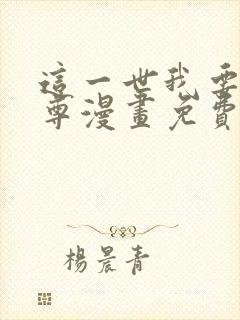 這一世我要
尊漫畫免費
楊晨青